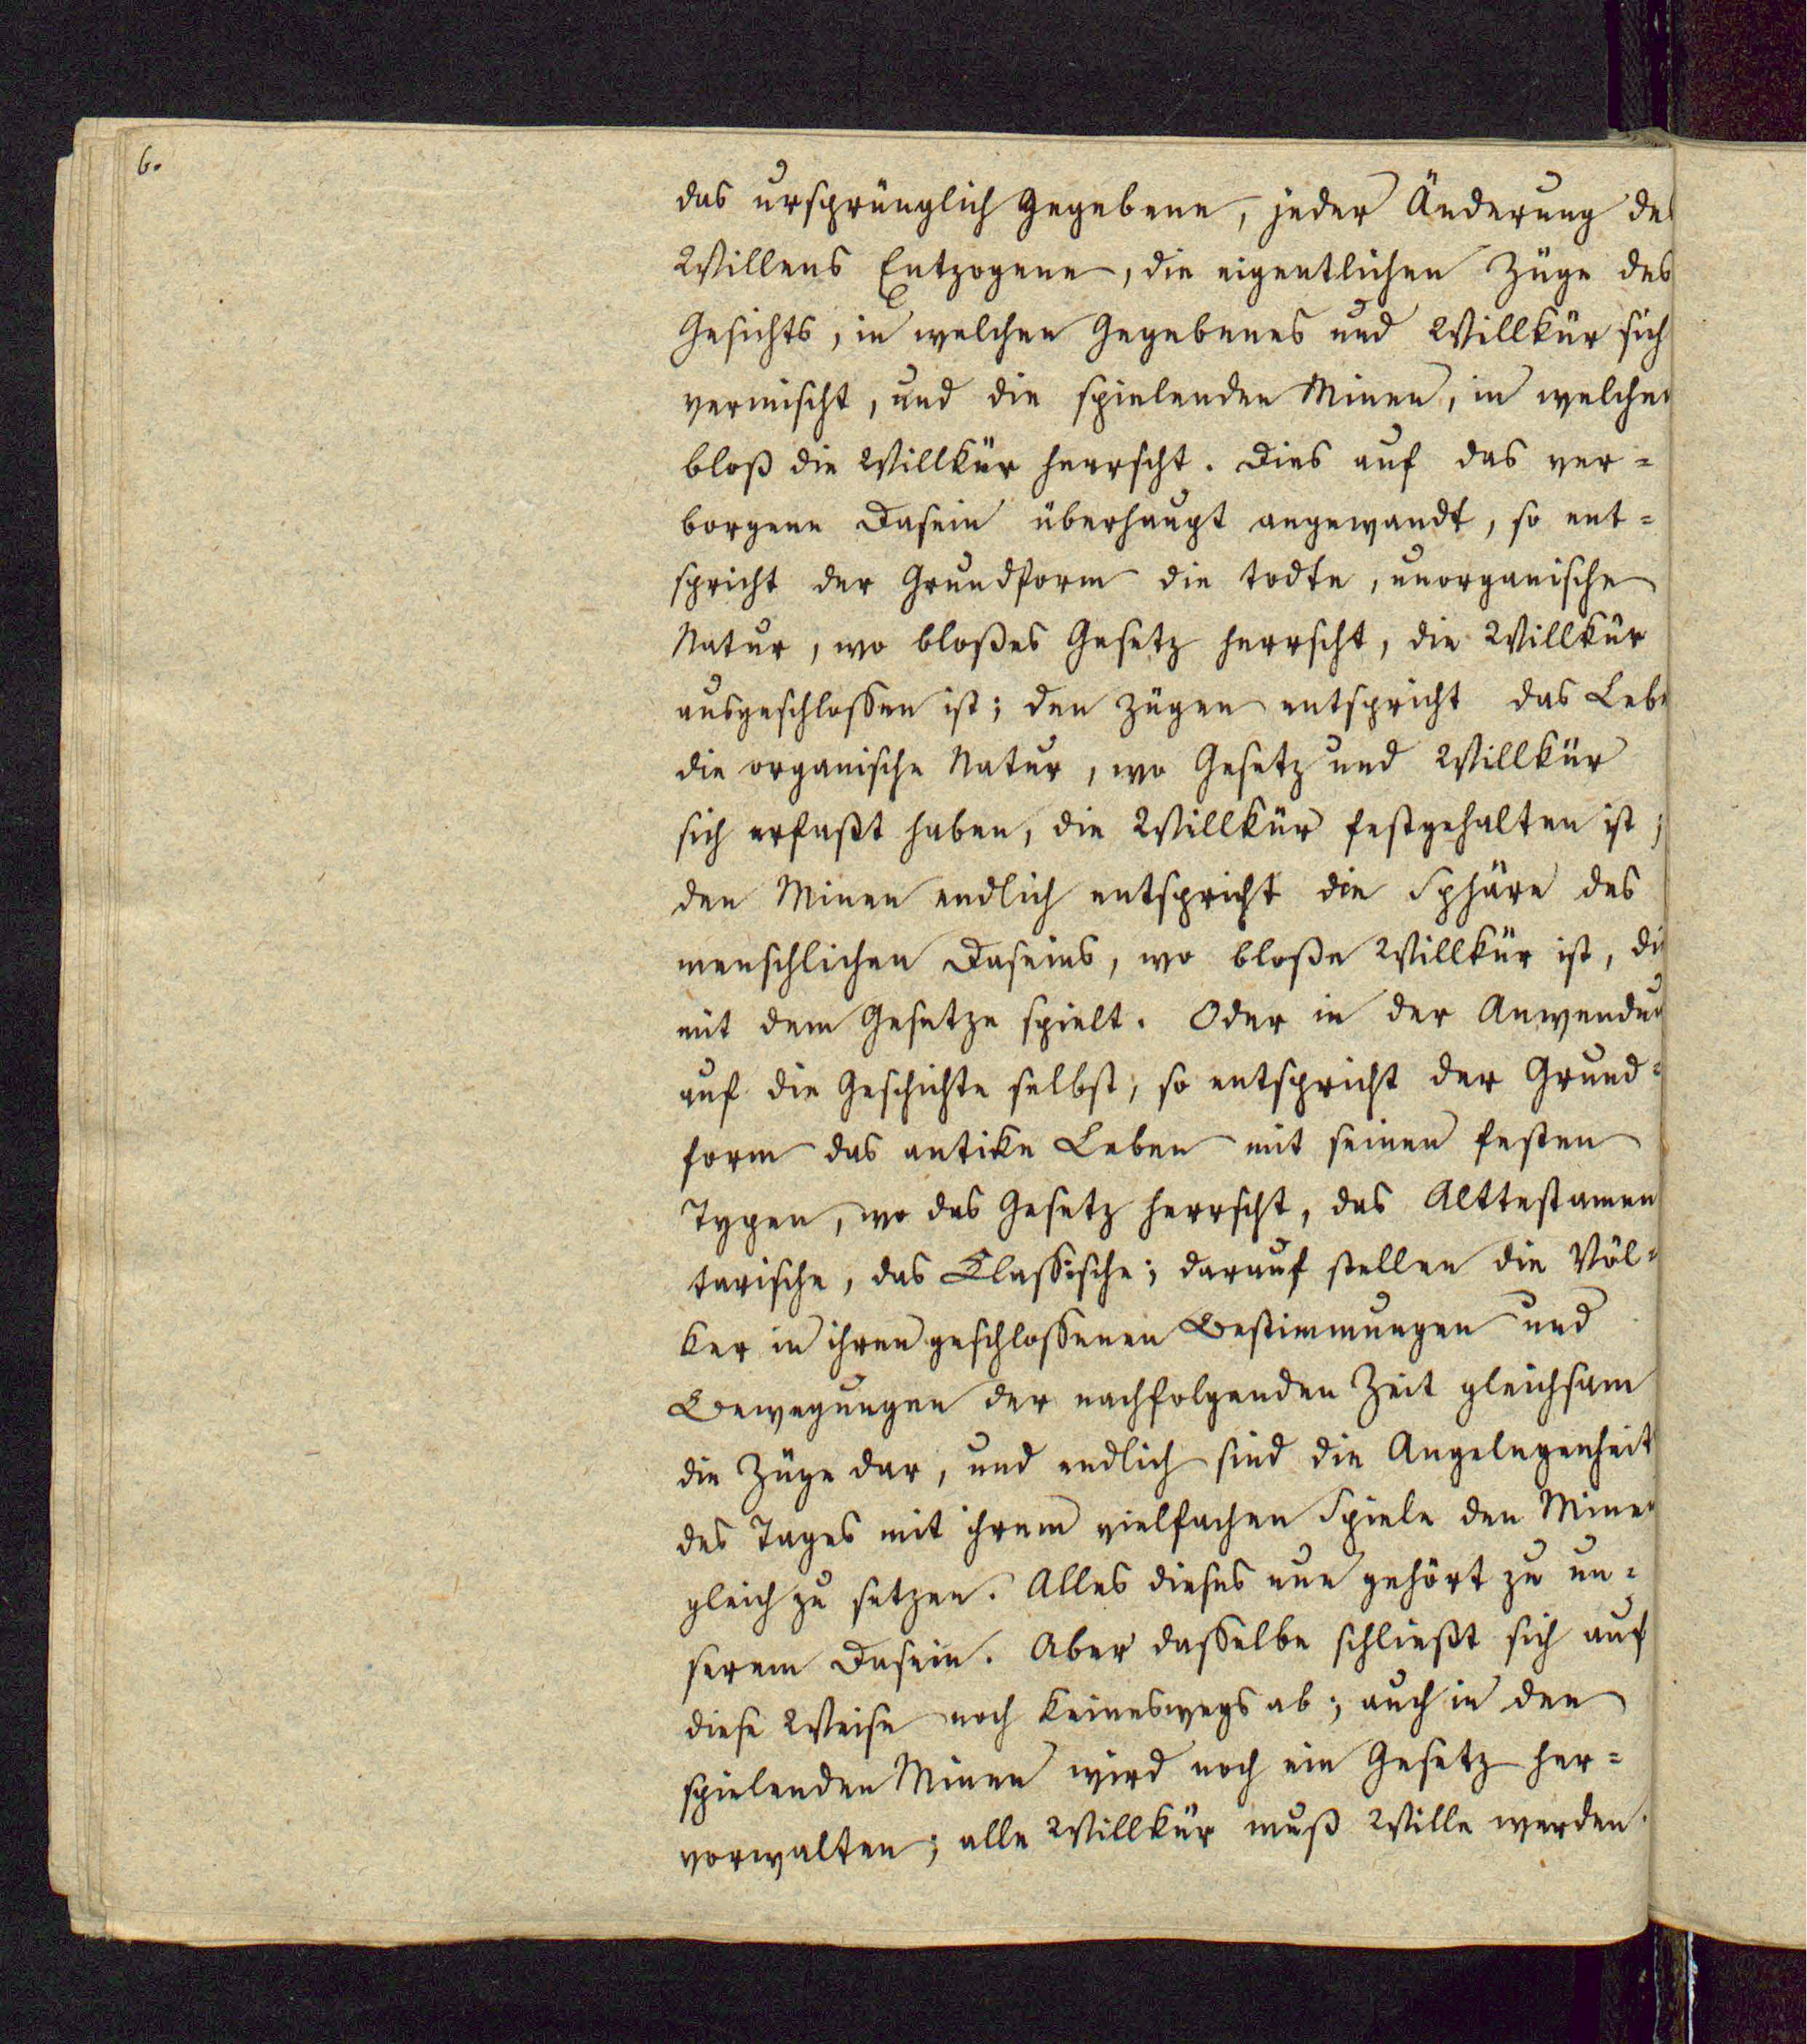 6.
das ursprünglich gegebene, jeder Änderung des
Willens Entzogene, die eigentlichen Züge des
Gesichts, in welchen Gegebenes und Willkür sich
vermischt, und die spielenden Minen, in welchen
bloß die Willkür herrscht. Dies auf das ver=
borgene Dasein überhaupt angewandt, so ent=
spricht der Grundform die todte, unorganische
Natur, wo bloßes Gesetz herrscht, die Willkür
ausgeschlossen ist; den Zügen entspricht das Lebe
die organische Natur, wo Gesetz und Willkür
sich erfaßt haben, die Willkür festgehalten ist;
den Minen endlich entspricht die Sphäre des
menschlichen Daseins, wo bloße Willkür ist, die
mit dem Gesetze spielt. Oder in der Anwendun
auf die Geschichte selbst, so entspricht der Grund=
form das antike Leben mit seinen festen
Typen, wo das Gesetz herrscht, das Alttestamen
tarische, das Classische; darauf stellen die Völ=
ker in ihren geschlossenen Bestimmungen und
Bewegungen der nachfolgenden Zeit gleichsam
die Züge dar, und endlich sind die Angelegenheit
des Tages mit ihrem vielfachen Spiele den Minen
gleich zu setzen. Alles dieses nun gehört zu un=
serem Dasein. Aber dasselbe schließt sich auf
diese Weise noch keineswegs ab; auch in den
spielenden Minen wird noch ein Gesetz her=
vorwalten; alle Willkür muß Wille werden.